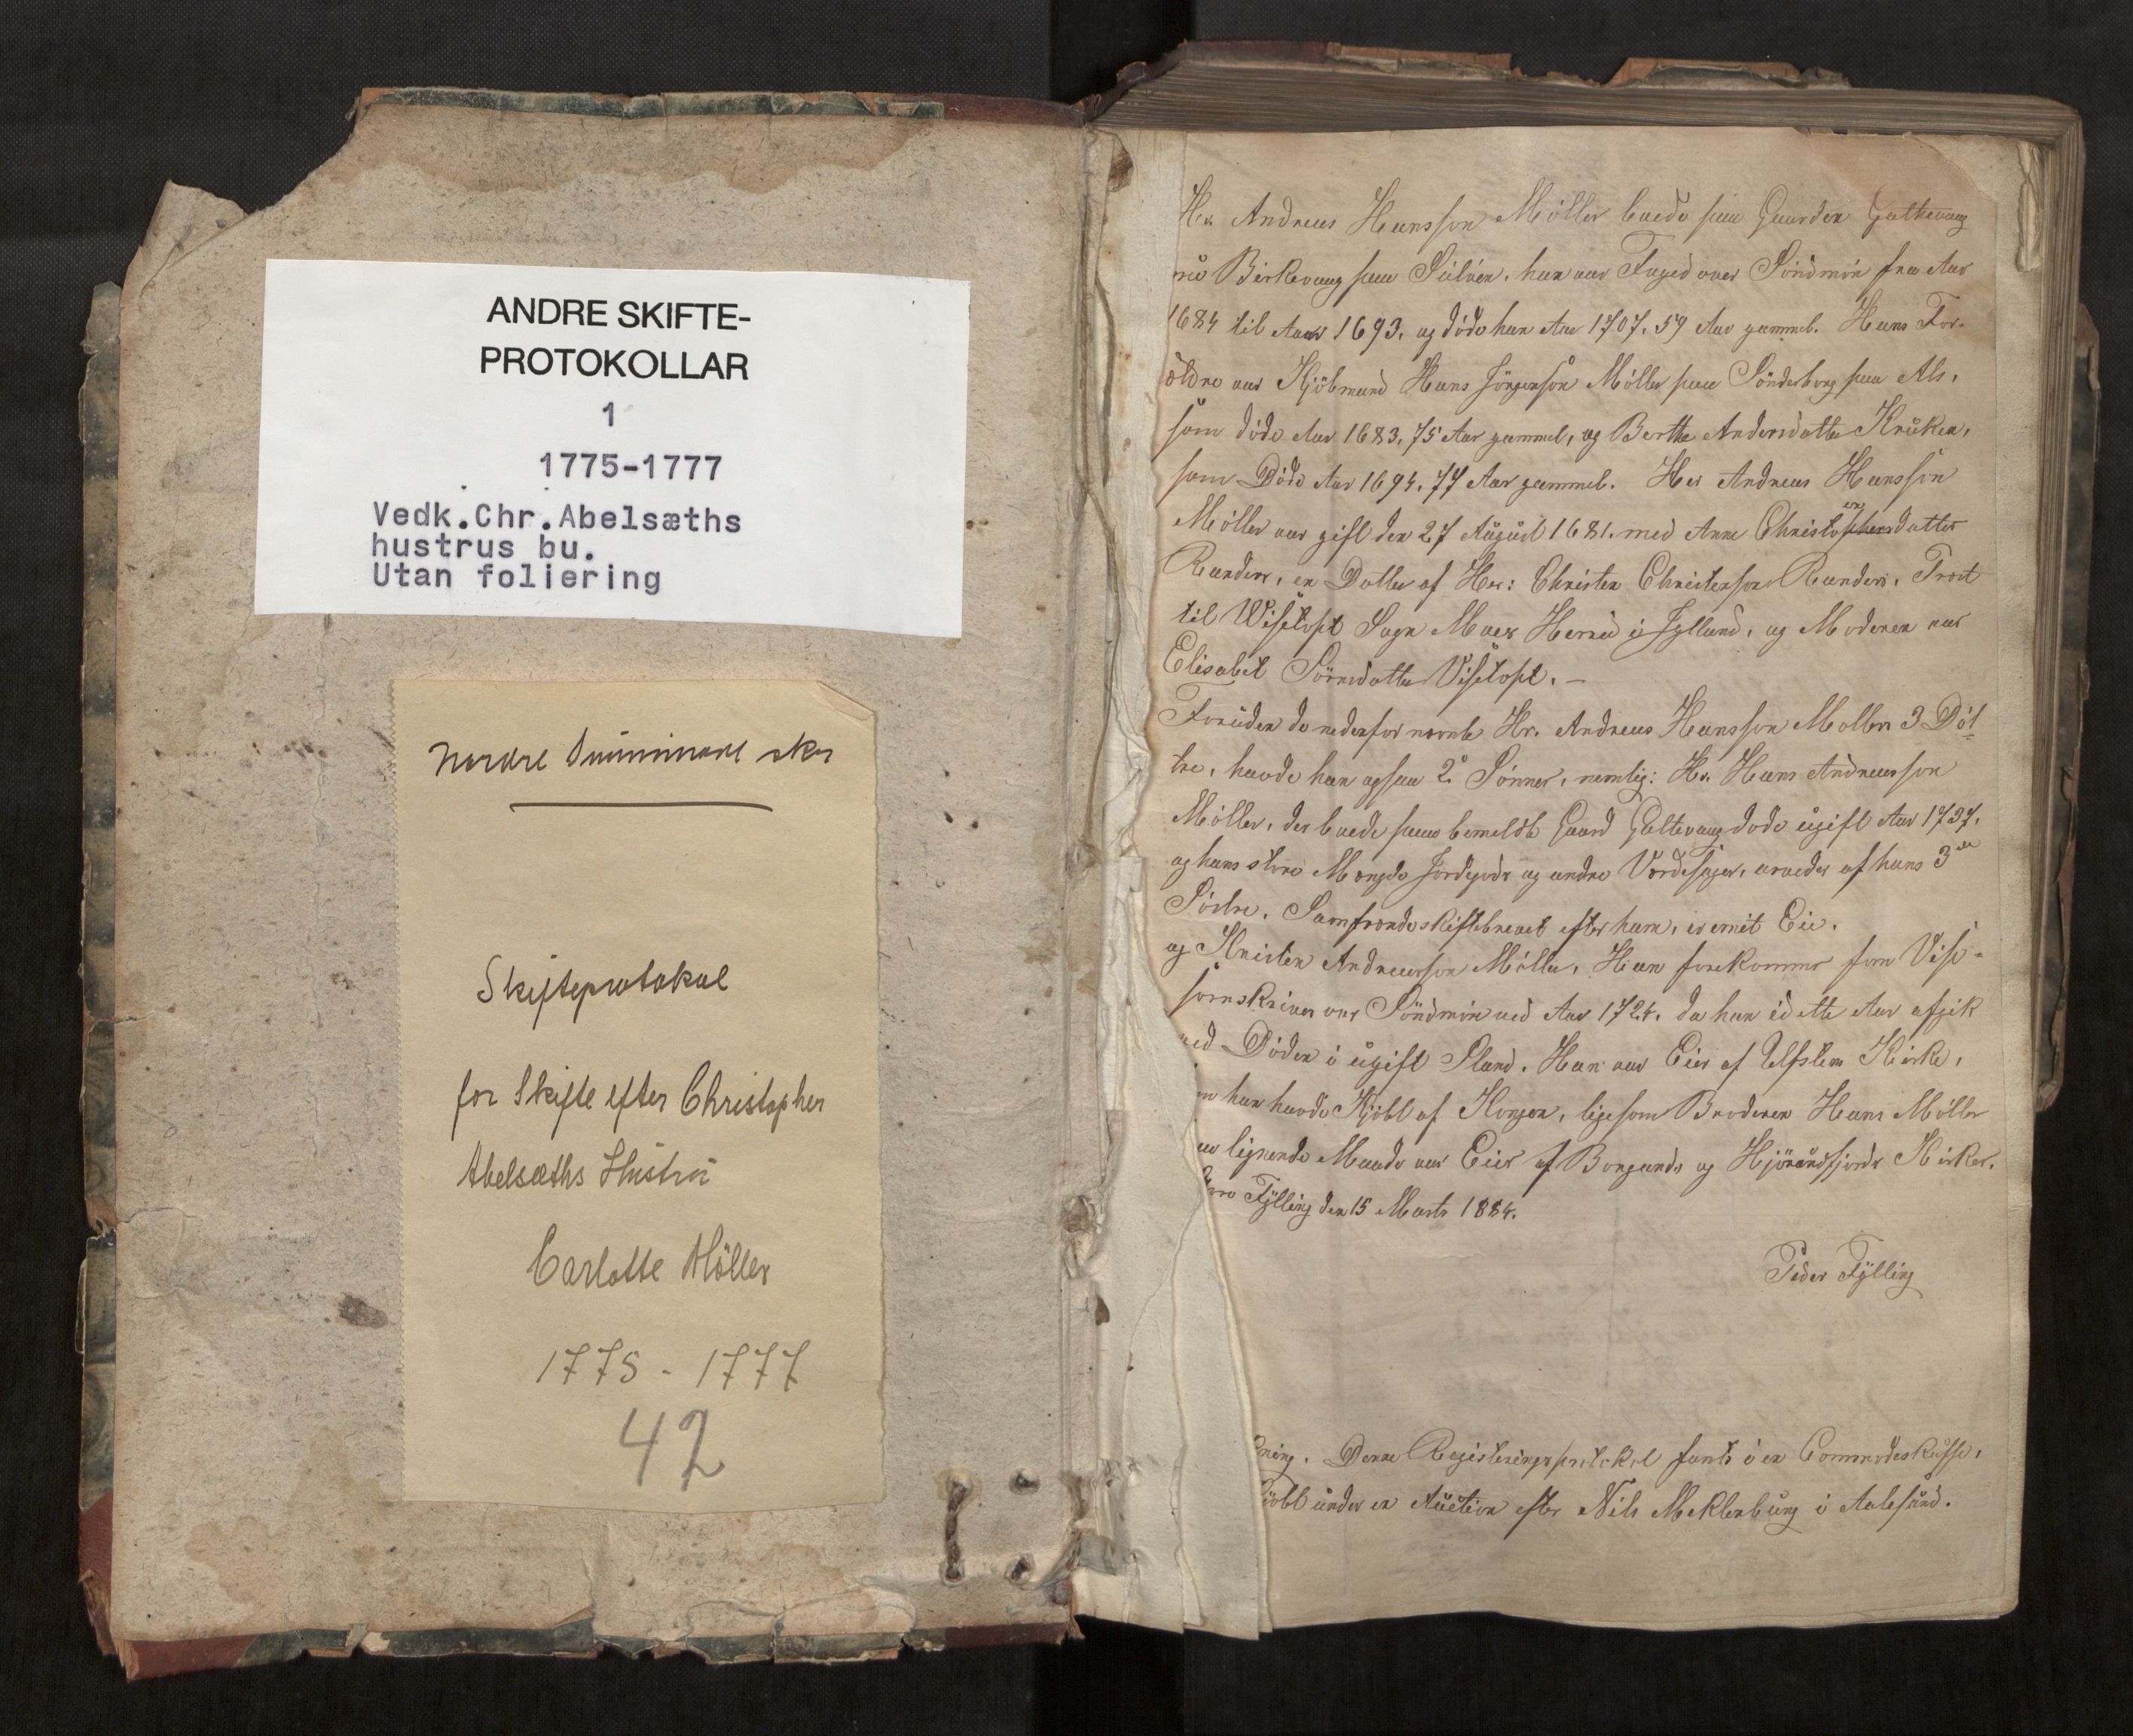 ANDRE SKIFTE-
PROTOKOLLAR
1
1775-1777
Vedk.Chr.Abelsæths
hustrus bu.
Utan foliering
Nordre Sunnmøre skr
Skifteprotokol
for Skifte efter Christopher
Abelsæths Hustru
Carlotte Möller
1775 - 1777
42
Hr. Andreas Hansson Möller boede paa Gaarden Galtevaag
Birkevaag paa Sulöen. han var Foged over Söndmör fra Aar
1684 til Aaar 1693. og döde han Aar 1707. 59 Aar gammel. Hans For-
ældre var Kjöbmand Hans Jörgensön Möller paa Sönderborg paa Als,
som döde Aar 1683, 75 Aar gammel, og Berthe Andersdatter Kruken,
som Döde Aar 1694. 77 Aar gammel. Her Andreas Hansson
Möller var gift den 27 August 1681. med Anne Christophersdatter
Randers, en Datter af Her: Christen Christenson Randers. Prost
til Sogn Herred i Jylland, og Moderen var
Elisabet Sörensdatter. –
Foruden de nedenfor nævnte Hr. Andreas Hansson Mollers 3 Döt
tre, havde han ogsaa 2 Sönner, nemlig: Hr. Hans Andreasson
Möller, der boede paa bemeldte Gaard Galtevaag dode ugift Aar 1737.
og hans store Mængde Jordegods og andre Værdesager, arvedes af hans 3
Söstre. Samfrændeskiftebrevet efter ham, er i mit Eie.
og Kristen Andreasson Möller. Han forekommer som Vise-
sornskriver over Söndmör ved Aar 1724. da han i dette Aar afgik
ved Döden i ugift Stand. Han var Eier af Ulfsten Kirke,
han havde Kjöbt af Kongen, ligesom Broderen Hans Möller
lignende Maade var Eier af Borgunds og Hjörundfjords Kirker.
Fylling den 15 Marts 1884.
Peder Fylling
Denne Registeringsprotokol fants i en Commodeskuffe,
kjöbt under en Auction efter Nils Meklenburg i Aalesund.